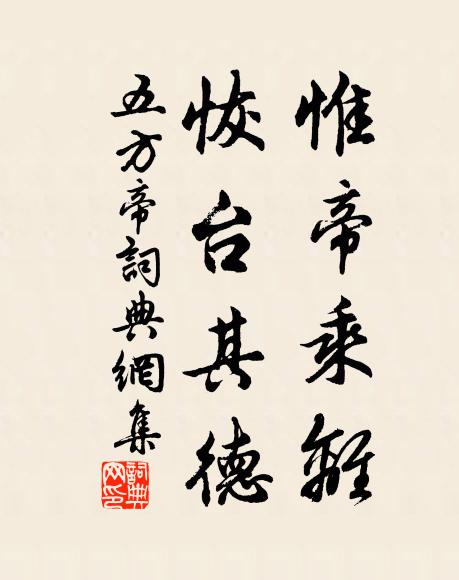 惟帝乘離
恢台其德
五方帝詞典網集
詞典
网印